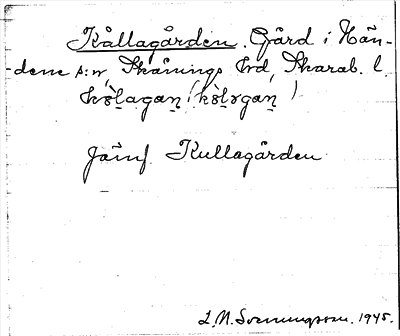 Kållagården. Gård i Hän-
-dene s:n, Skånings hrd, Skarab. l.
kòlagaṇ (kòlɔgaṇ)
Jämf. Kullagården
L. N. Svenungsson. 1945.